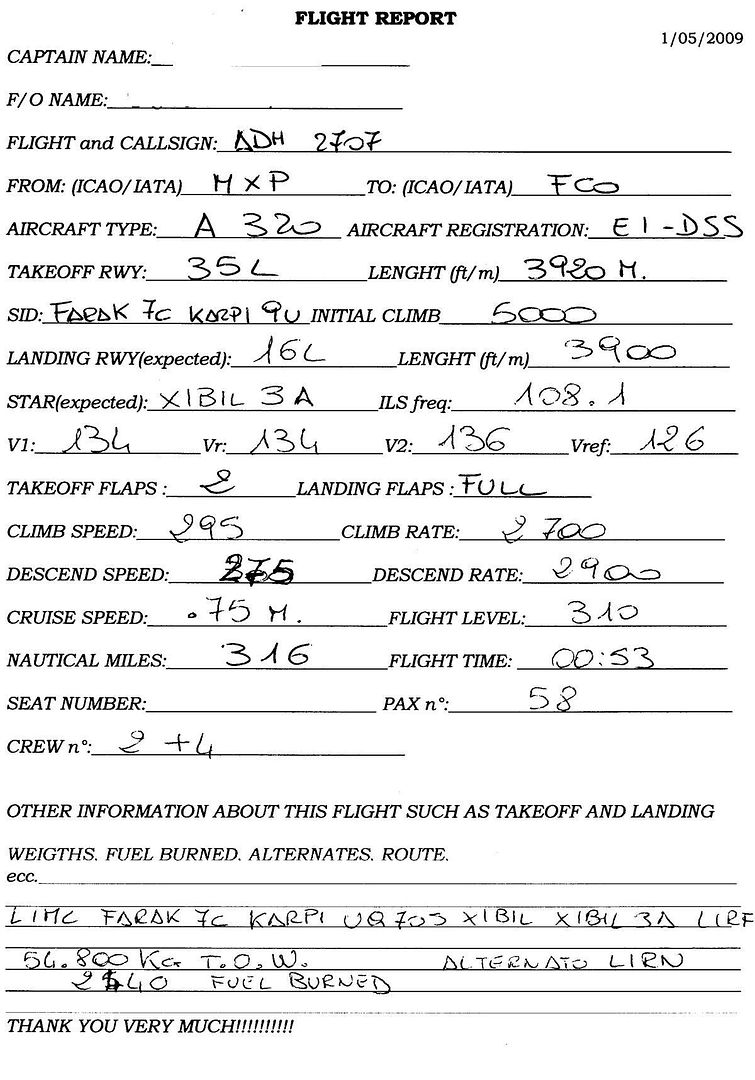 FLIGHT REPORT
1/05/2009
CAPTAIN NAME:
F/O NAME:
FLIGHT and CALLSIGN: ADH 2707
FROM: (ICAO/IATA) MXP TO: (ICAO/IATA) FCO
AIRCRAFT TYPE: A 320 AIRCRAFT REGISTRATION: EI-DSS
TAKEOFF RWY: 35L LENGHT (ft/m) 3920 M.
SID: FARAK 7C KARPI 9U INITIAL CLIMB 5000
LANDING RWY(expected): 16L LENGHT (ft/m) 3900
STAR(expected): XIBIL 3A ILS freq: 108.1
V1: 134 Vr: 134 V2: 136 Vref: 126
TAKEOFF FLAPS : 2 LANDING FLAPS : FULL
CLIMB SPEED: 295 CLIMB RATE: 2700
DESCEND SPEED: 275 DESCEND RATE: 2900
CRUISE SPEED: .75 M. FLIGHT LEVEL: 310
NAUTICAL MILES: 316 FLIGHT TIME: 00:53
SEAT NUMBER: PAX n°: 58
CREW n°: 2 +4
OTHER INFORMATION ABOUT THIS FLIGHT SUCH AS TAKEOFF AND LANDING
WEIGTHS. FUEL BURNED. ALTERNATES. ROUTE.
ecc.
LIMC FARAK 7C KARPI UQ705 XIBIL XIBIL 3A LIRF
54.800 KG T.O.W. ALTERNATO LIRN
FUEL BURNED
THANK YOU VERY MUCH!!!!!!!!!!